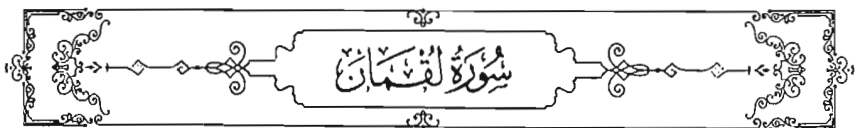 سُورَةُ لُقْمَانَ